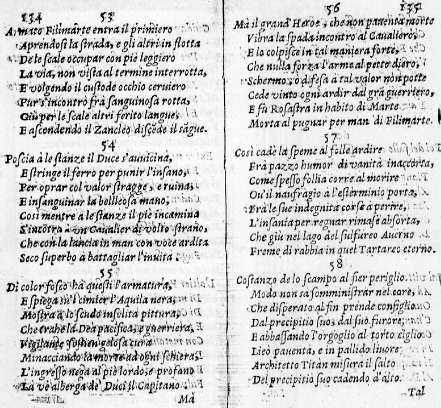 134 53
Armato Filimarte entra il primiero
Aprendosi la strada, e gli altri in flotta
De le scale occupar con piè leggiero
La via, non vista al termine interrotta,
E volgendo il custode occhio cerviero
Pur s'incontrò frà sanguinosa rotta,
Giù per le scale altri ferito langue,
E ascendendo il Zancleo discẽde il sãgue.
54
Poscia à le stanze il Duce s'auuicina,
E stringe il ferro per punir l'insano,
Per oprar col valor stragge, e ruina,
E insanguinar la bellicosa mano;
Così mentre a le stanze il piè incamina
S'incõtra un Caualier di volto strano,
Che con la lancia in man con voce ardita
Seco superbo à battagliar l'inuita.
55
Di color fosco hà questi l'armatura,
E spiega ne'l cimier l'Aquila nera,
Mostra a lo scudo insolita pittura,
Che trahe la Dea pacifica, e guerriera,
Vigilante sostien gelosa cura
Minacciando la morte ad ogni schiera,
L'ingresso nega al piè lordo, e profano
La vè alberga de' Duci il Capitano.
Mà
56 135
Mà il grand'Heroe, che non pauenta morte
Vibra la spada incontro al Caualiero,
E la colpisce in tal maniera forte,
Che nulla forza l'arme al petto diero,
Schermo, ò difesa à tal valor nõ potte
Cede vinto ogni ardir dal grã guerriero,
E fù Rosastra in habito di Marte
Morta al pugnar per man di Filimarte.
57
Così cadè la speme al folle ardire
Frà pazzo humor di vanità inaccorta,
Come spesso follia corre al morire
Ou'il naufragio a l'esterminio porta,
Frà le sue indegnità corse à perire,
L'insania per regnar rimase absorta,
Che giù nel lago del sulfureo Auerno
Freme di rabbia in quel Tartareo eterno.
58
Costanzo de lo scampo al fier periglio
Modo non sà somministrar nel core,
Che disperato al fin prende consiglio
Dal precipitio suo, dal suo furore;
E abbassando l'orgoglio al torto ciglio
Licò pauentà, e in pallido liuore
Architetto Titàn misura il salto
Del precipitio suo cadendo d'alto.
Tal